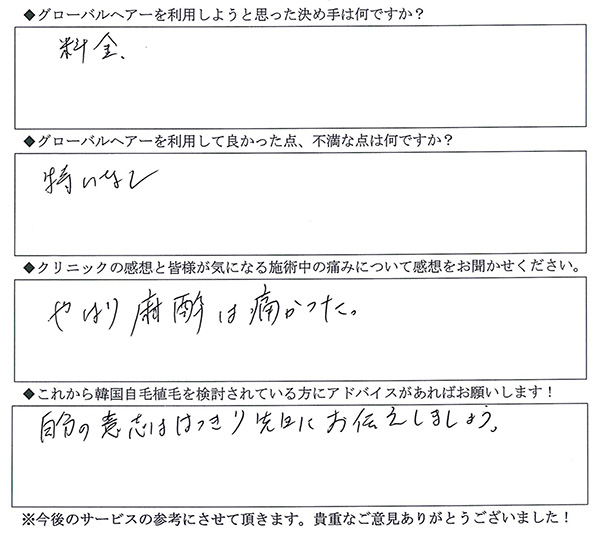 ◆グローバルヘアーを利用しようと思った決め手は何ですか？
料金、
◆グローバルヘアーを利用して良かった点、不満な点は何ですか？
特になし
◆クリニックの感想と皆様が気になる施術中の痛みについて感想をお聞かせください。
やはり麻酔は痛かった。
◆これから韓国自毛植毛を検討されている方にアドバイスがあればお願いします！
自分の意志ははっきり先生にお伝えしましょう。
※今後のサービスの参考にさせて頂きます。貴重なご意見ありがとうございました！